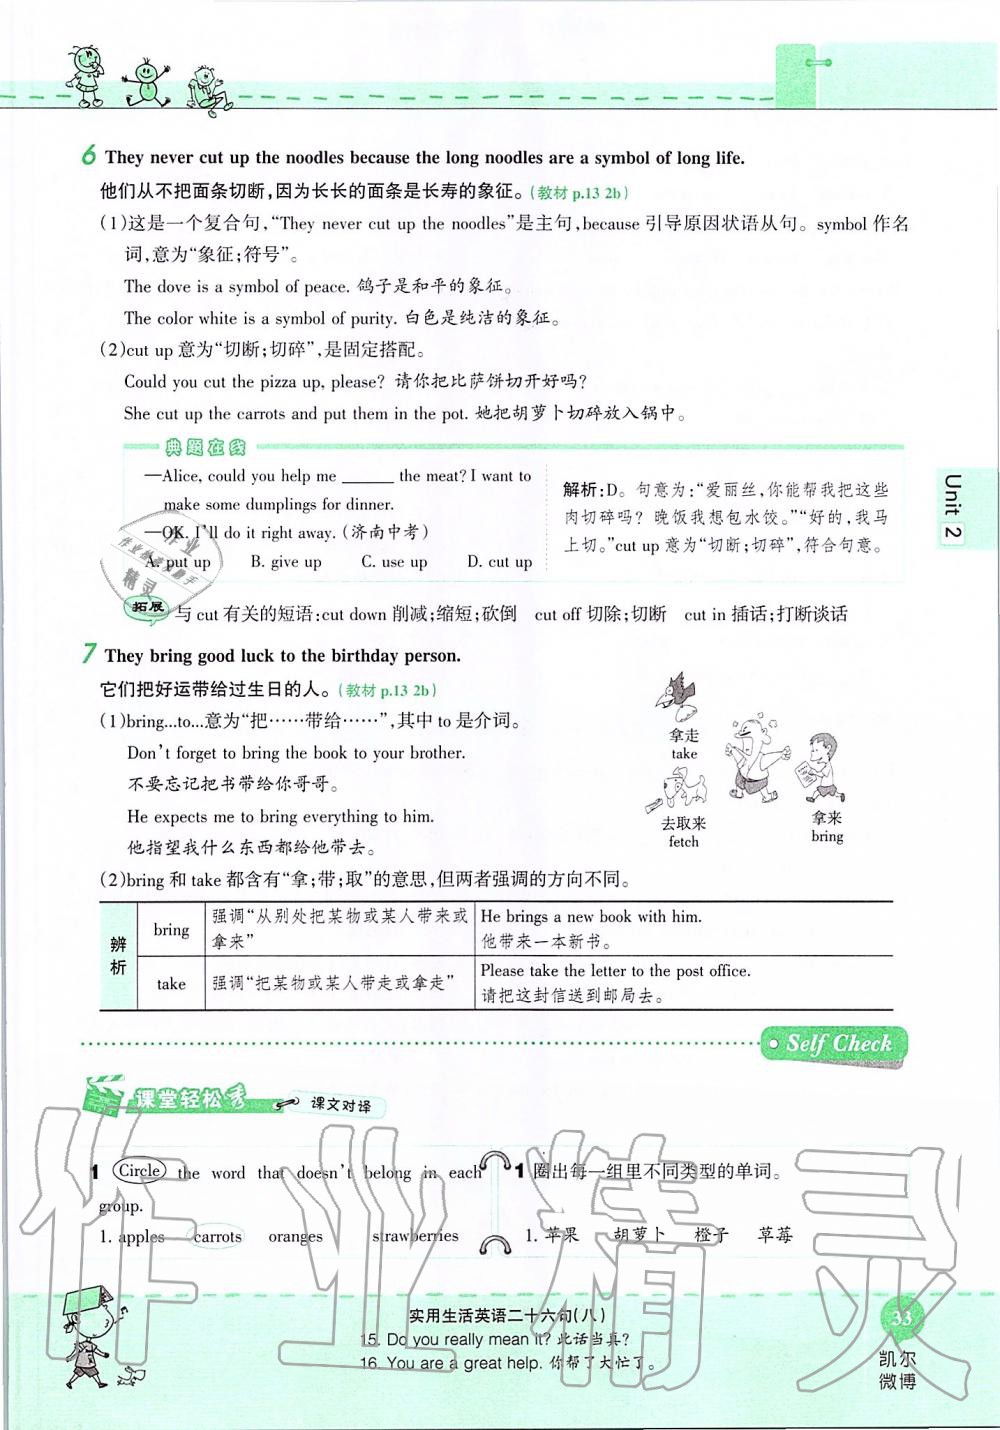 6 They never cut up the noodles because the long noodles are a symbol of long life.
他们从不把面条切断,因为长长的面条是长寿的象征。(教材 p.13 2b)
(1)这是一个复合句,“They never cut up the noodles”是主句,because 引导原因状语从句。symbol 作名
词,意为“象征;符号”。
The dove is a symbol of peace. 鸽子是和平的象征。
The color white is a symbol of purity. 白色是纯洁的象征。
(2)cut up 意为“切断;切碎”,是固定搭配。
Could you cut the pizza up, please? 请你把比萨饼切开好吗?
She cut up the carrots and put them in the pot. 她把胡萝卜切碎放入锅中。
典题在线
—Alice, could you help me ______ the meat? I want to
make some dumplings for dinner.
—OK. I'll do it right away. (济南中考)
A. put up B. give up C. use up D. cut up
解析:D。句意为:“爱丽丝,你能帮我把这些
肉切碎吗? 晚饭我想包水饺。”“好的,我马
上切。”cut up 意为“切断;切碎”,符合句意。
Unit 2
拓展 与 cut 有关的短语:cut down 削减;缩短;砍倒 cut off 切除;切断 cut in 插话;打断谈话
7 They bring good luck to the birthday person.
它们把好运带给过生日的人。(教材 p.13 2b)
(1)bring...to...意为“把……带给……”,其中 to 是介词。
Don't forget to bring the book to your brother.
不要忘记把书带给你哥哥。
He expects me to bring everything to him.
他指望我什么东西都给他带去。
拿走
take
去取来
fetch
拿来
bring
(2)bring 和 take 都含有“拿;带;取”的意思,但两者强调的方向不同。
辨析
bring 强调“从别处把某物或某人带来或
拿来”
He brings a new book with him.
他带来一本新书。
take 强调“把某物或某人带走或拿走”
Please take the letter to the post office.
请把这封信送到邮局去。
Self Check
课堂轻松秀 课文对译
1 Circle the word that doesn't belong in each
group.
1. apples carrots oranges strawberries
1 圈出每一组里不同类型的单词。
1. 苹果 胡萝卜 橙子 草莓
实用生活英语二十六句(八)
15. Do you really mean it? 此话当真?
16. You are a great help. 你帮了大忙了。
33
凯尔
微博
作业精灵
作业检查小助手
作业
精灵